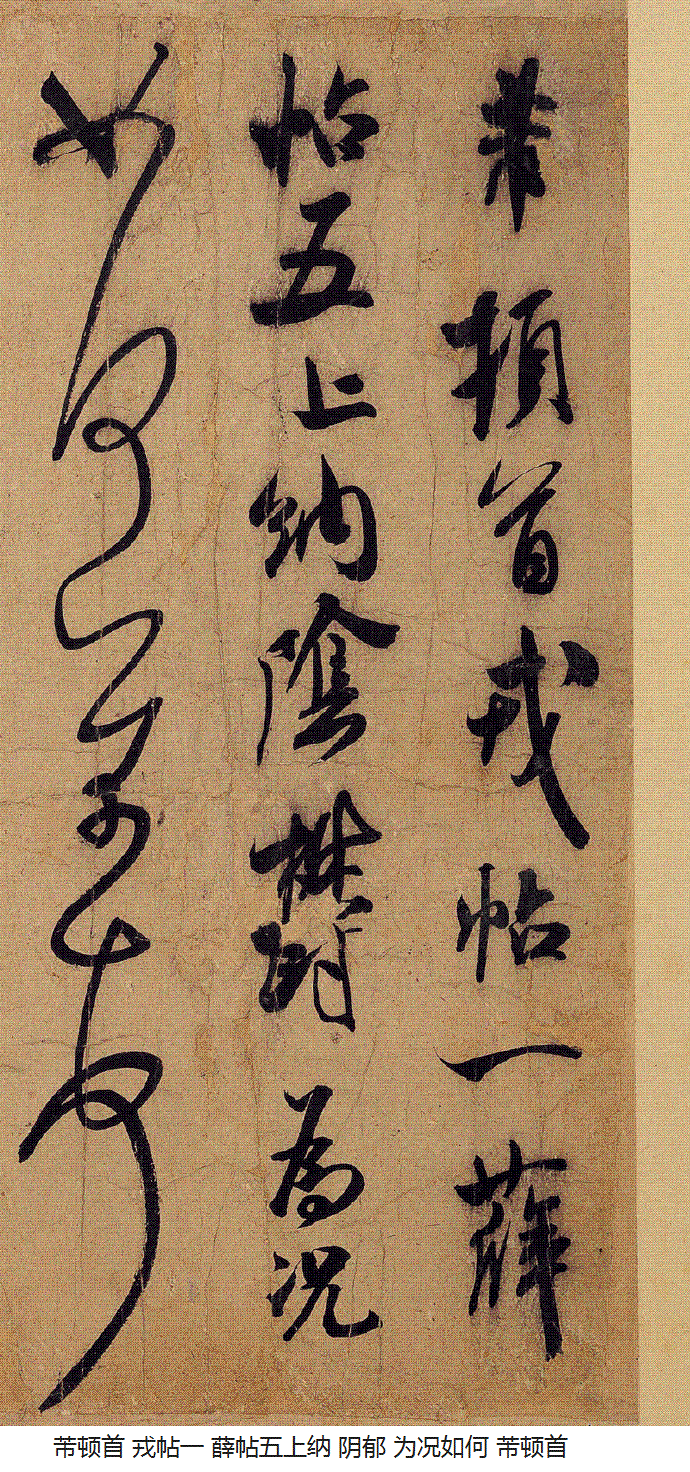 芾頓首戎帖一薛
帖五上納陰欝為況
如何芾頓首
芾顿首 戎帖一 薛帖五上纳 阴郁 为况如何 芾顿首